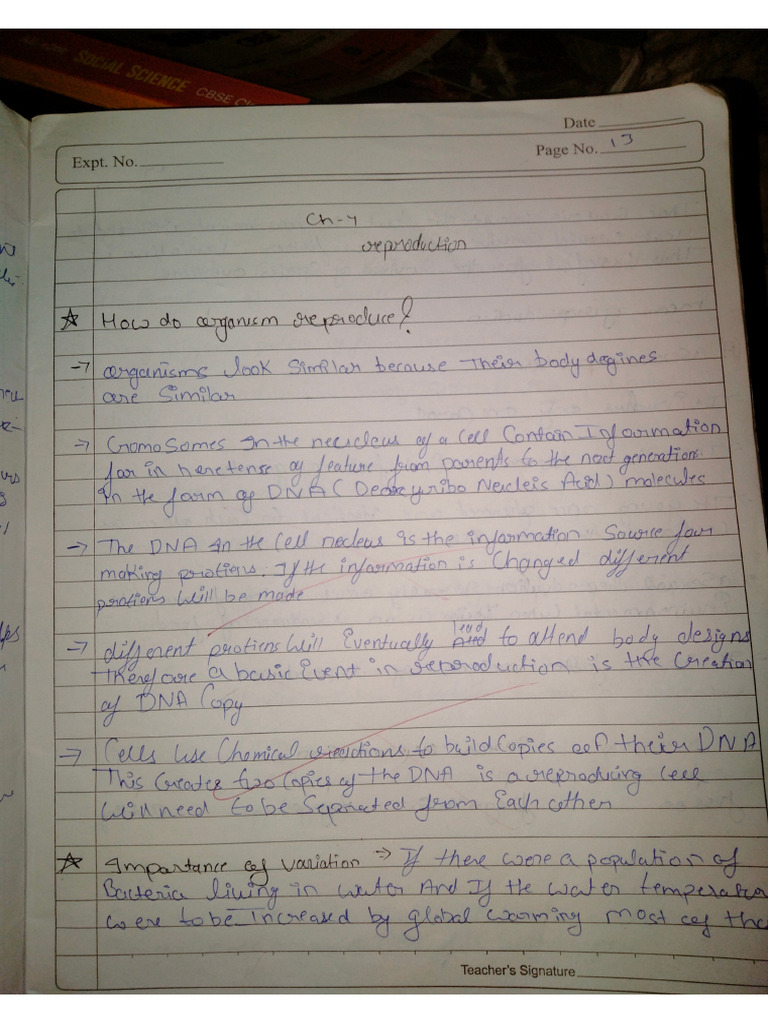 SOCIAL SCIENCE CBSE
Date
Expt. No.
Page No. 13
Ch-4
reproduction
How do organism reproduce?
→ organisms look similar because their body degines
are similar
→ Cromosomes In the neucleus of a cell Contain Information
for in heretense of feature from parents to the next generations
In the form of DNA (Deoxyribo Neucleis Acid) molecules
→ The DNA In the Cell nocleus is the information Source for
making protiens. If the information is Changed different
protiens will be made
→ different protiens will Eventually lead to attend body designs
therefore a basic Event in reproduction is the Creation
of DNA Copy
→ Cells Use Chemical reactions to build Copies of their DNA
This Creates two Copies of the DNA is a reproducing Cell
will need to be Separated from Each other
Importance of variation → If there were a population of
Bacteria living in water And If the water temperatur
were to be Increased by global warming most of the
Teacher's Signature